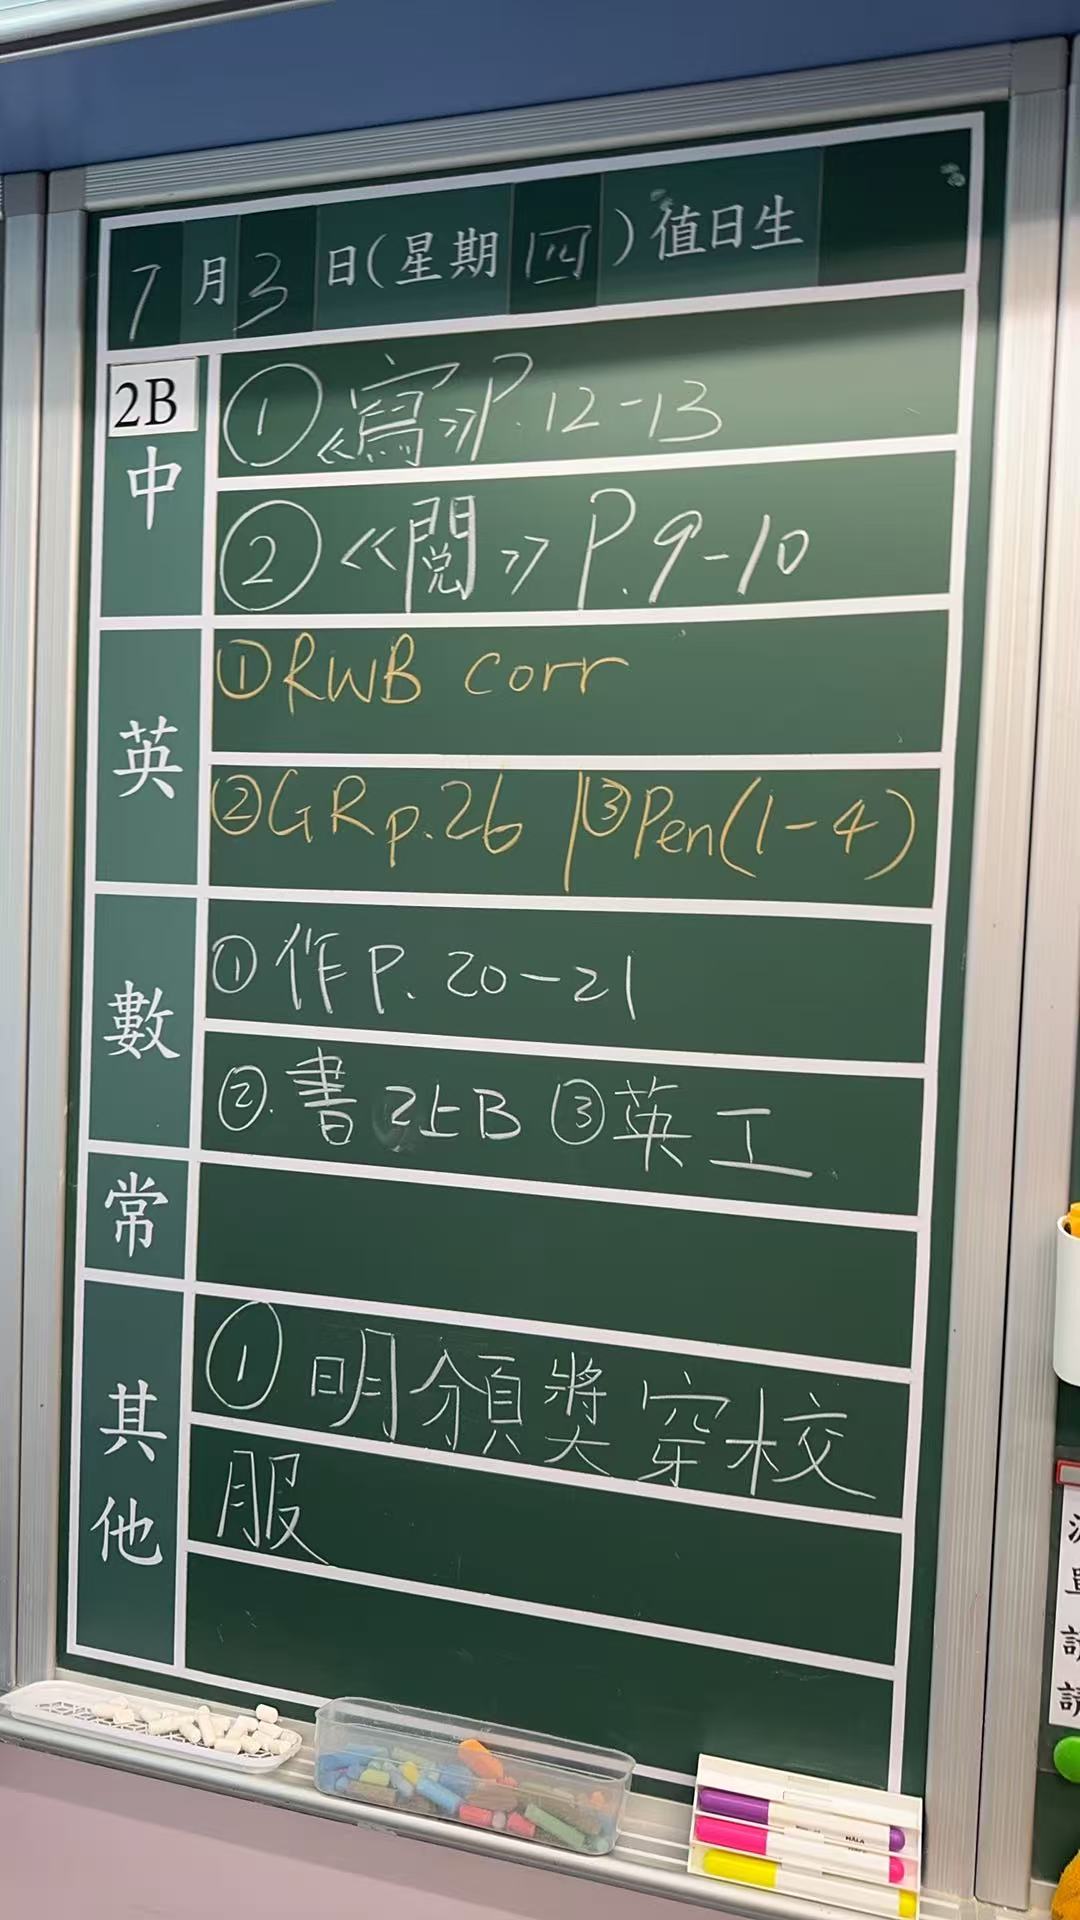 7月3日(星期四)值日生
2B
中
①《寫》P.12-13
②《閱》P.9-10
英
①RWB corr
②GR p.26 |③Pen(1-4)
數
①作P.20-21
②.書2上B ③英工
常
其他
①明頒獎穿校
服